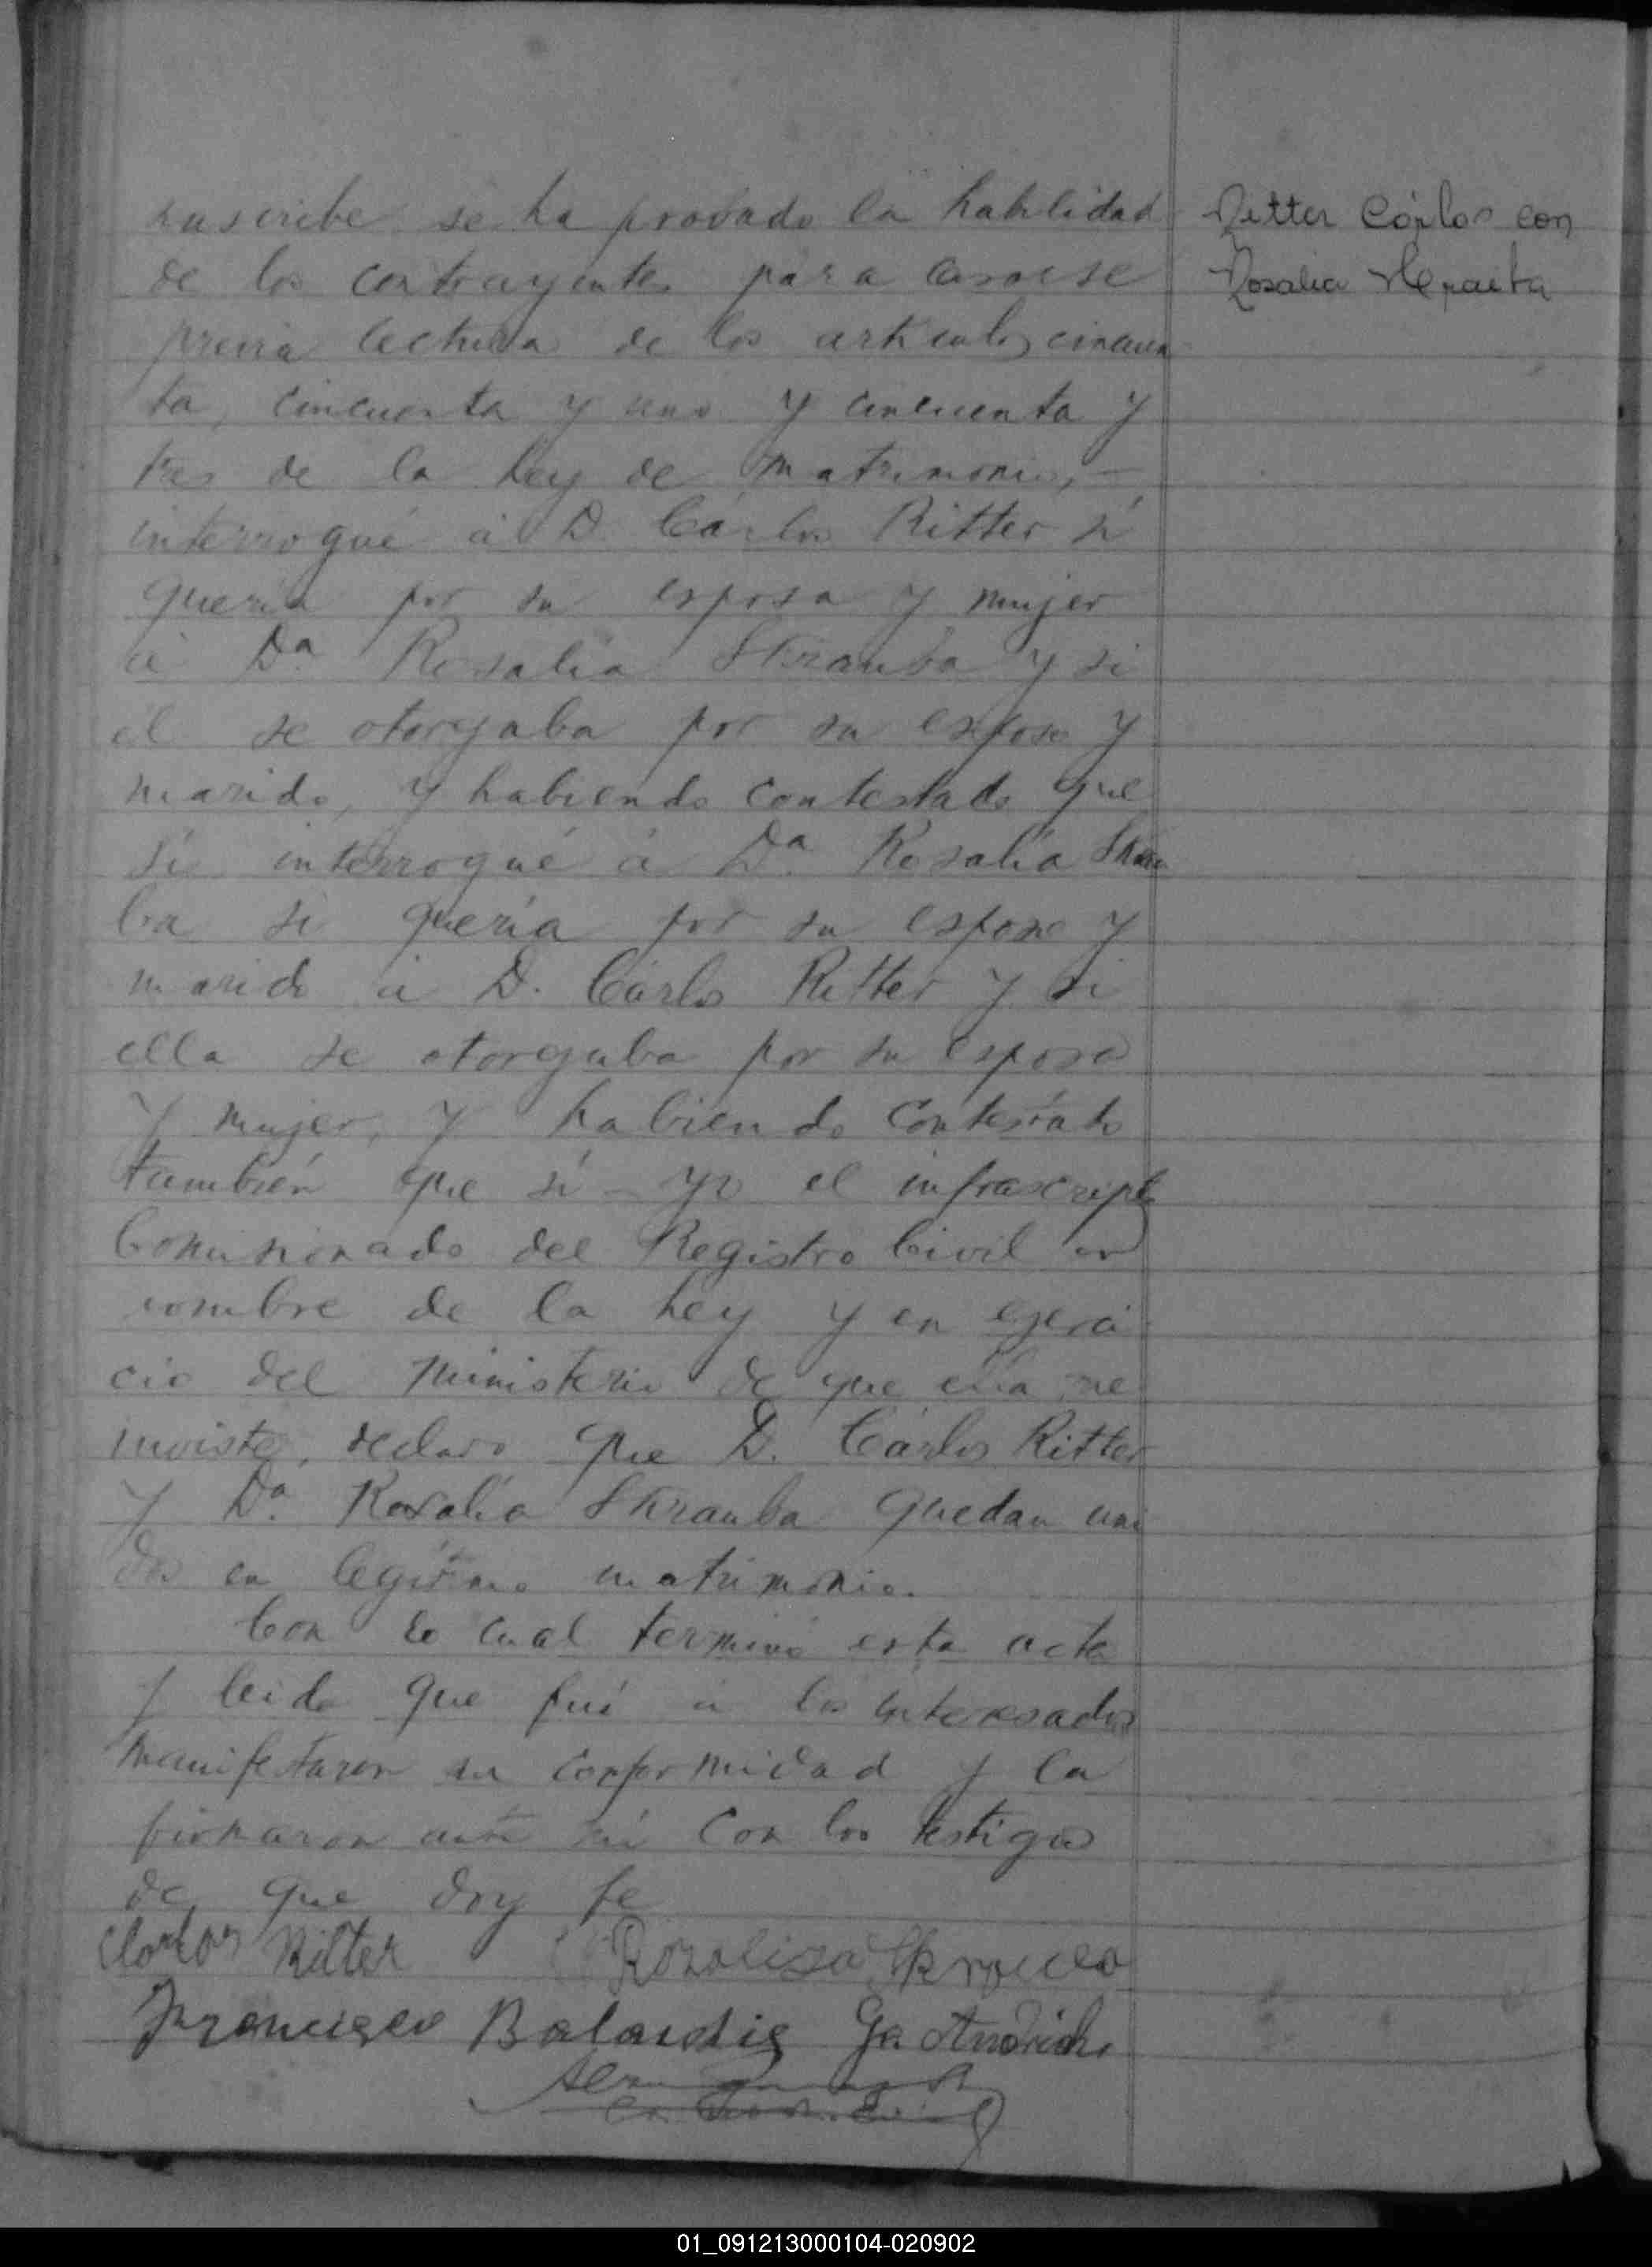 suscribe se ha probado la habilidad
de los contrayentes para casarse
previa lectura de los articulos cincuen
ta, cincuenta y uno y cincuenta y
tres de la Ley de matrimonio, —
interrogué á D. Cárlos Ritter si
queria por su esposa y mujer
á Da Rosalia Skrauba y si
el se otorgaba por su esposo y
marido, y habiendo contestado que
si interrogué á Da. Rosalia Skrau
ba si queria por su esposo y
marido á D. Cárlos Ritter y si
ella se otorgaba por su esposa
y mujer, y habiendo contestado
también que si - yo el infrascripto
Comisionado del Registro Civil en
nombre de la Ley y en egerci
cio del ministerio de que ella me
inviste, declaro que D. Cárlos Ritter
y Da. Rosalia Skrauba quedan uni
dos en legitimo matrimonio.
Con lo cual terminó esta acta
y leida que fué á los interesados
manifestaron su conformidad y la
firmaron ante mi con los testigos
de que doy fe
Carlos Ritter
Francisco
Ritter Cárlos con
Rosalia
01_091213000104-020902